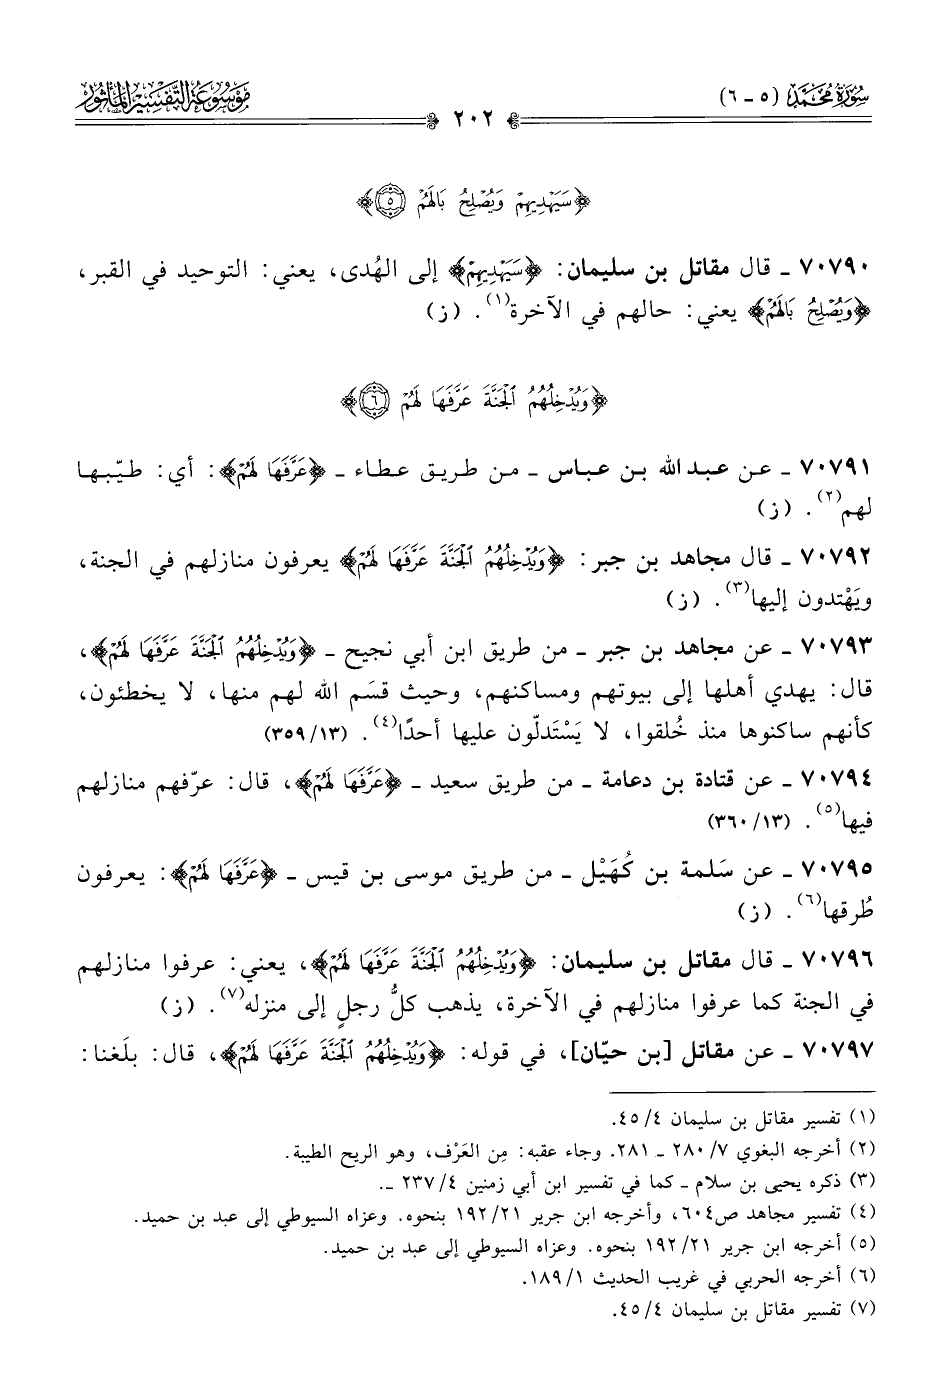 سُورَةُ مُحَمَّد (٥ - ٦)
موسوعة التفسير المأثور
٢٠٢
﴿سَيَهْدِيهِمْ وَيُصْلِحُ بَالَهُمْ ٥﴾
٧٠٧٩٠ - قال مقاتل بن سليمان: ﴿سَيَهْدِيهِمْ﴾ إلى الهُدى، يعني: التوحيد في القبر،
﴿وَيُصْلِحُ بَالَهُمْ﴾ يعني: حالهم في الآخرة(١). (ز)
﴿وَيُدْخِلُهُمُ ٱلْجَنَّةَ عَرَّفَهَا لَهُمْ ٦﴾
٧٠٧٩١ - عن عبد الله بن عباس - من طريق عطاء - ﴿عَرَّفَهَا لَهُمْ﴾: أي: طيّبها
لهم(٢). (ز)
٧٠٧٩٢ - قال مجاهد بن جبر: ﴿وَيُدْخِلُهُمُ ٱلْجَنَّةَ عَرَّفَهَا لَهُمْ﴾ يعرفون منازلهم في الجنة،
ويَهْتدون إليها(٣). (ز)
٧٠٧٩٣ - عن مجاهد بن جبر - من طريق ابن أبي نجيح - ﴿وَيُدْخِلُهُمُ ٱلْجَنَّةَ عَرَّفَهَا لَهُمْ﴾،
قال: يهدي أهلها إلى بيوتهم ومساكنهم، وحيث قسَم الله لهم منها، لا يخطئون،
كأنهم ساكنوها منذ خُلقوا، لا يَسْتَدلّون عليها أحدًا(٤). (١٣/ ٣٥٩)
٧٠٧٩٤ - عن قتادة بن دعامة - من طريق سعيد - ﴿عَرَّفَهَا لَهُمْ﴾، قال: عرّفهم منازلهم
فيها(٥). (١٣/ ٣٦٠)
٧٠٧٩٥ - عن سَلمة بن كُهَيْل - من طريق موسى بن قيس - ﴿عَرَّفَهَا لَهُمْ﴾: يعرفون
طُرقها(٦). (ز)
٧٠٧٩٦ - قال مقاتل بن سليمان: ﴿وَيُدْخِلُهُمُ ٱلْجَنَّةَ عَرَّفَهَا لَهُمْ﴾، يعني: عرفوا منازلهم
في الجنة كما عرفوا منازلهم في الآخرة، يذهب كلُّ رجلٍ إلى منزله(٧). (ز)
٧٠٧٩٧ - عن مقاتل [بن حيّان]، في قوله: ﴿وَيُدْخِلُهُمُ ٱلْجَنَّةَ عَرَّفَهَا لَهُمْ﴾، قال: بلَغنا:
(١) تفسير مقاتل بن سليمان ٤/ ٤٥.
(٢) أخرجه البغوي ٧/ ٢٨٠ - ٢٨١. وجاء عقبه: مِن العَرْف، وهو الريح الطيبة.
(٣) ذكره يحيى بن سلام - كما في تفسير ابن أبي زمنين ٤/ ٢٣٧ -.
(٤) تفسير مجاهد ص٦٠٤، وأخرجه ابن جرير ٢١/ ١٩٢ بنحوه. وعزاه السيوطي إلى عبد بن حميد.
(٥) أخرجه ابن جرير ٢١/ ١٩٢ بنحوه. وعزاه السيوطي إلى عبد بن حميد.
(٦) أخرجه الحربي في غريب الحديث ١/ ١٨٩.
(٧) تفسير مقاتل بن سليمان ٤/ ٤٥.